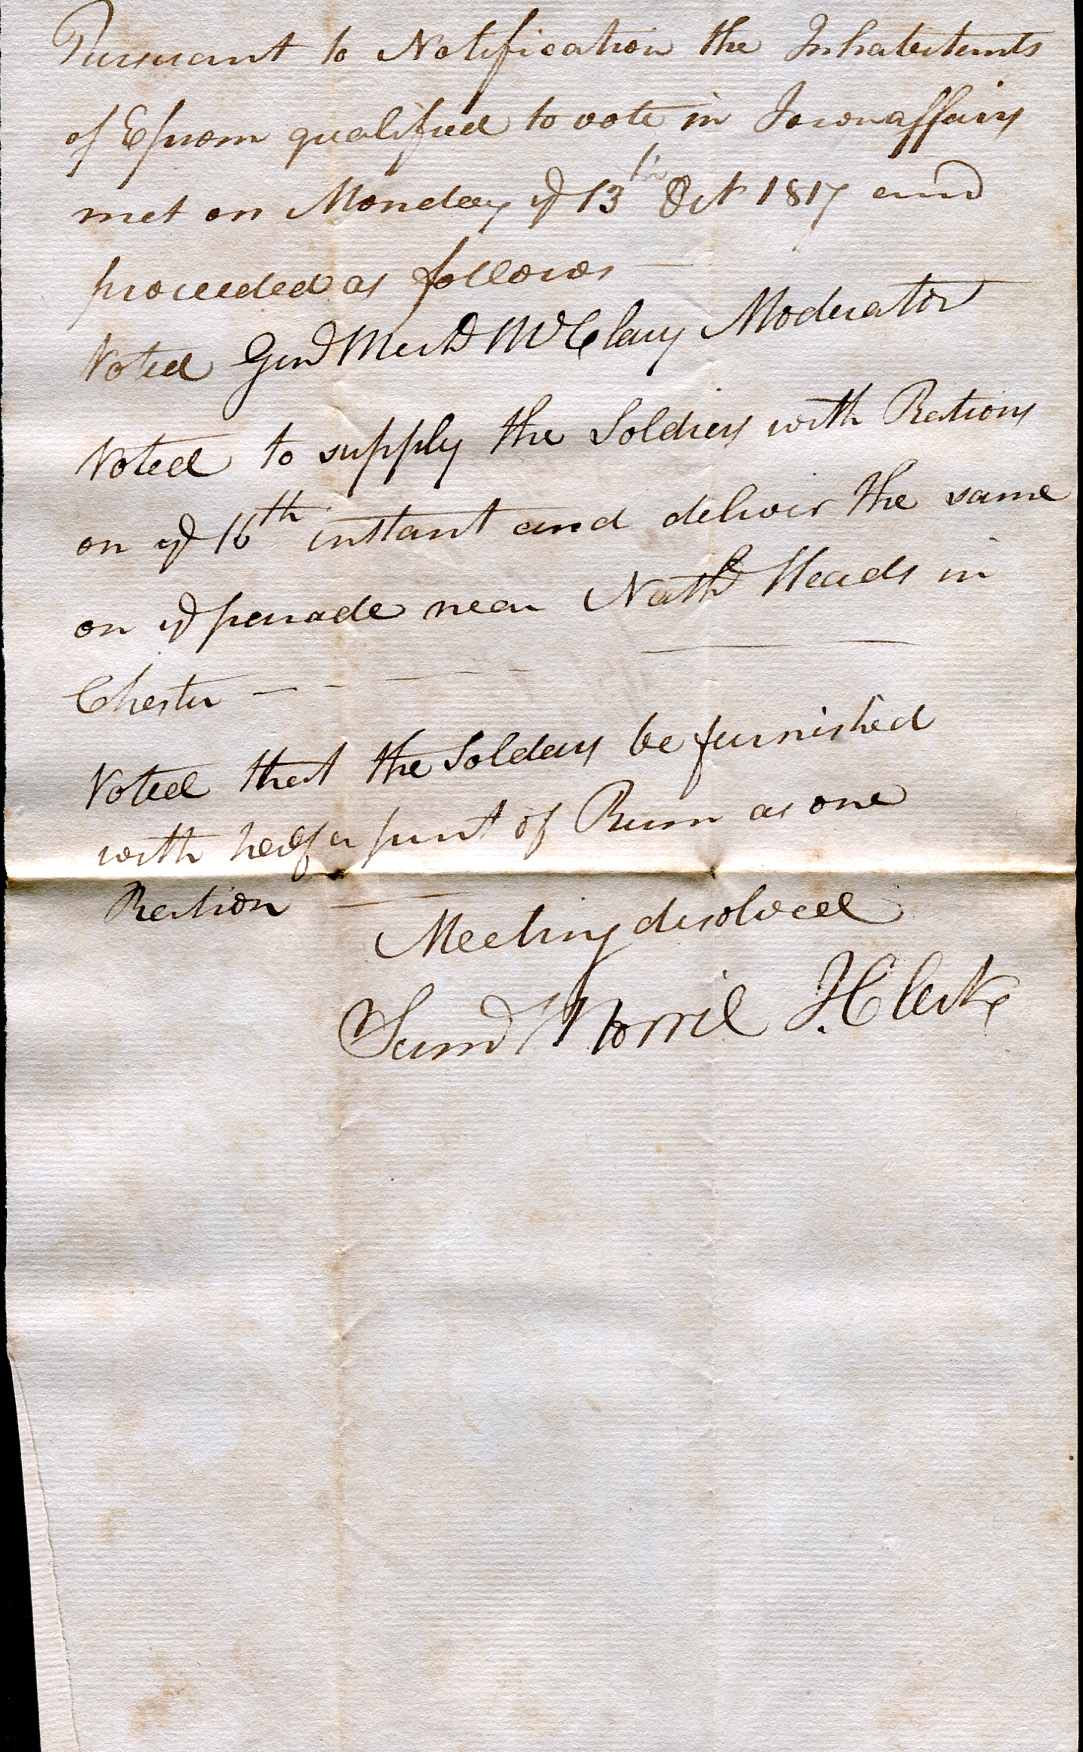 Pursuant to Notification the Inhabitants
of Epsom qualified to vote in Town affairs
met on Monday ye 13th Oct 1817 and
proceeded as follows —
Voted Genl Michl McClary Moderator
Voted to supply the Soldiers with Rations
on ye 16th instant and deliver the same
on ye parade near Nathl Heads in
Chester — — — — —
Voted that the Soldiers be furnished
with half a pint of Rum as one
Ration —
Meeting disolved
Saml Morril T. Clerk